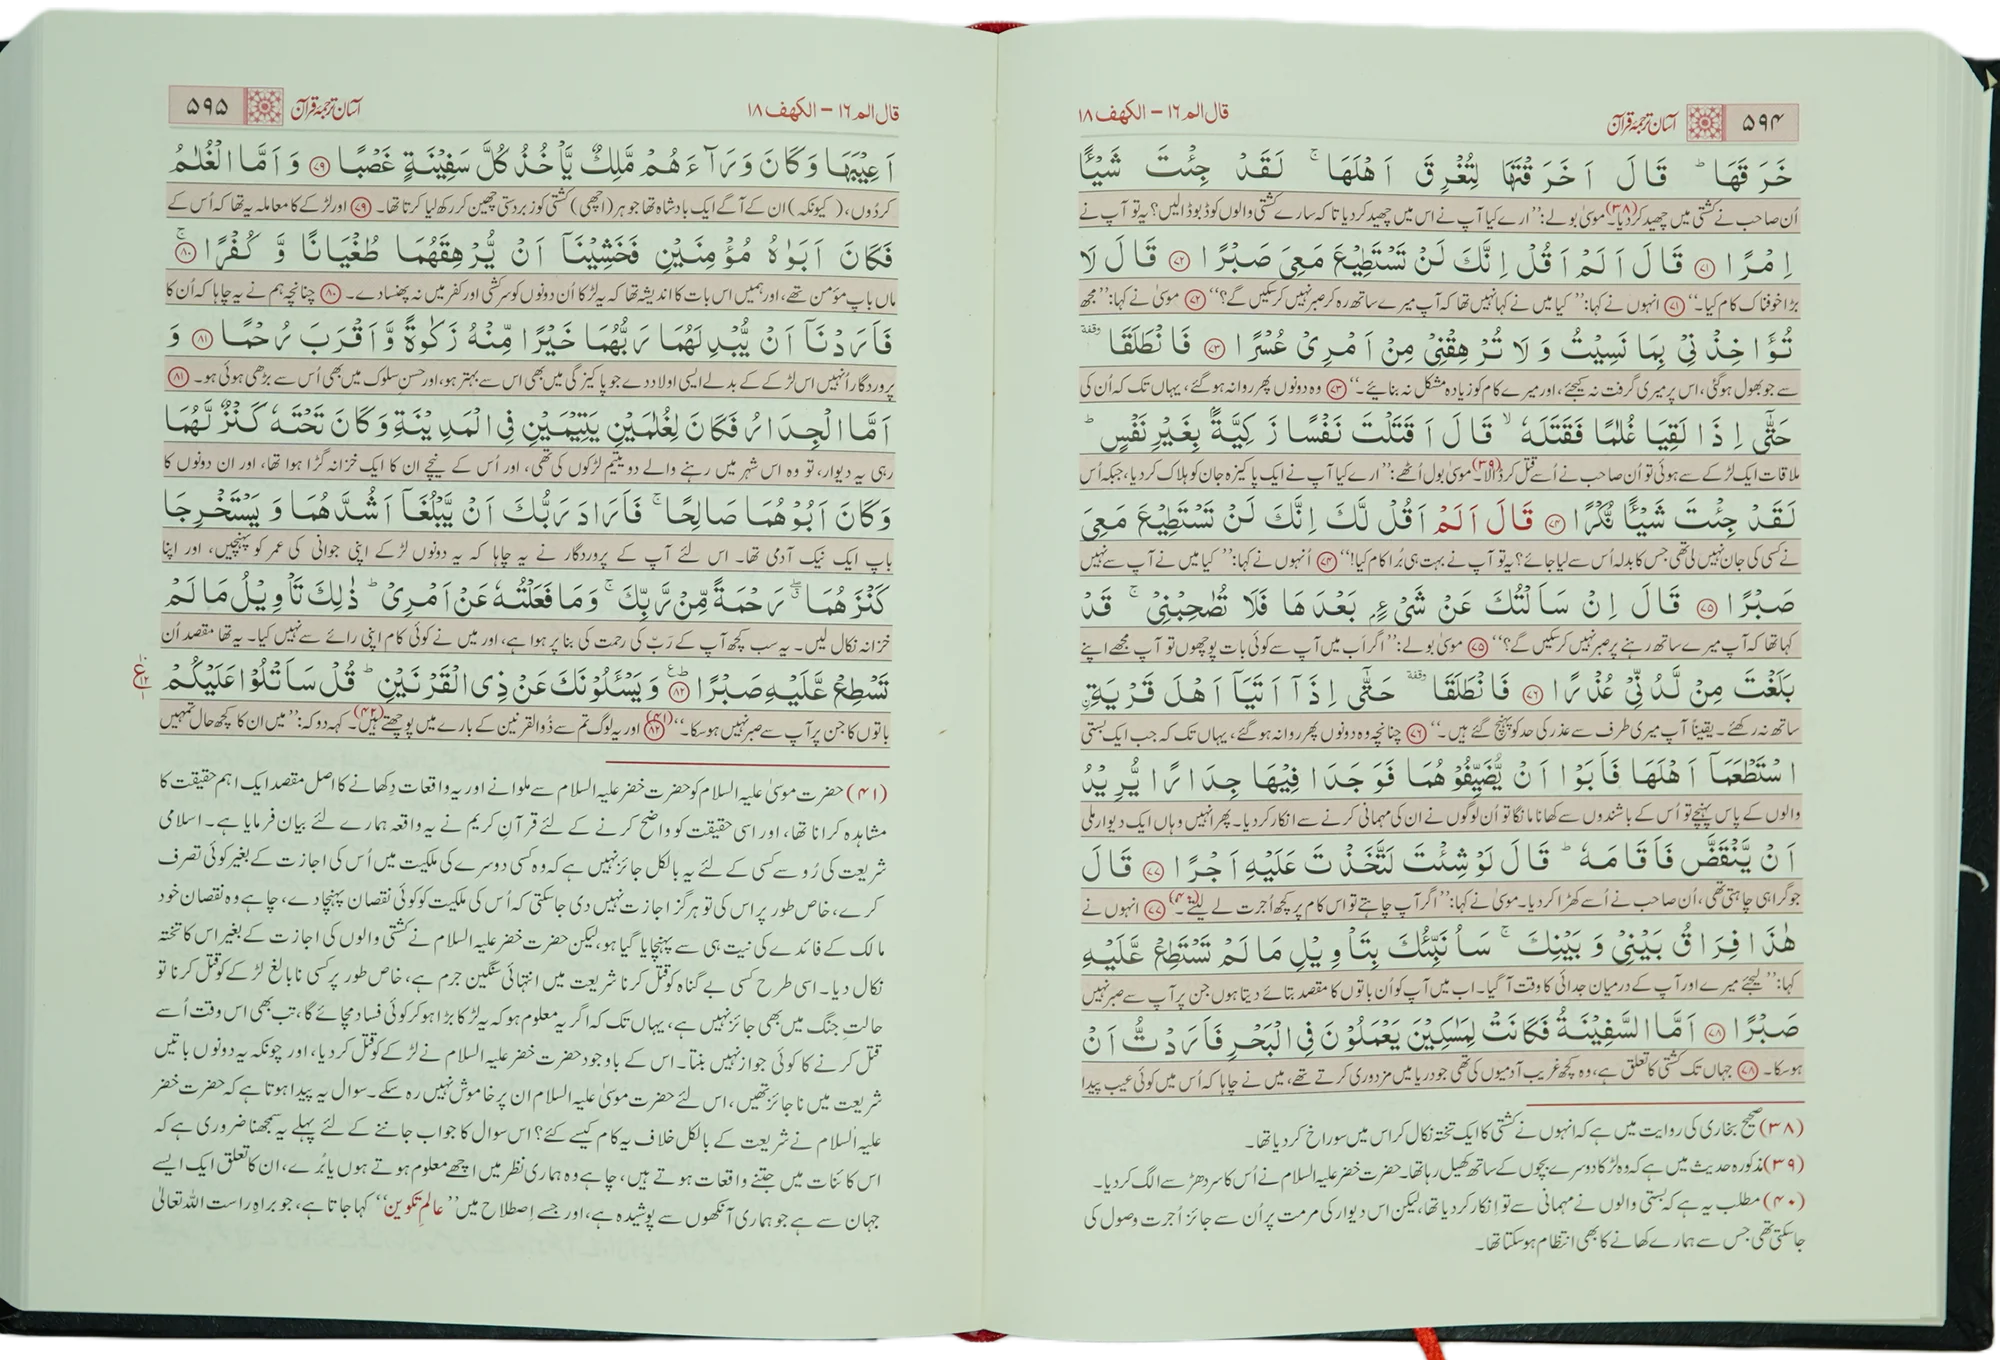 ۵۹۴ آسان ترجمۂ قرآن قال الم ۱۶ – الکہف ۱۸
خَرَقَهَا ؕ قَالَ اَخَرَقْتَهَا لِتُغْرِقَ اَهْلَهَا ۚ لَقَدْ جِئْتَ شَيْـًٔا
اُن صاحب نے کشتی میں چھید کردیا۔(۳۸) موسیٰ بولے: ’’ارے کیا آپ نے اس میں چھید کردیا تاکہ سارے کشتی والوں کو ڈبو ڈالیں؟ یہ تو آپ نے
اِمْرًا ﴿۷۱﴾ قَالَ اَلَمْ اَقُلْ اِنَّكَ لَنْ تَسْتَطِيْعَ مَعِيَ صَبْرًا ﴿۷۲﴾ قَالَ لَا
بڑا خوفناک کام کیا۔‘‘ ﴿۷۱﴾ انہوں نے کہا: ’’کیا میں نے کہا نہیں تھا کہ آپ میرے ساتھ رہ کر صبر نہیں کرسکیں گے؟‘‘ ﴿۷۲﴾ موسیٰ نے کہا: ’’مجھ
تُؤَاخِذْنِيْ بِمَا نَسِيْتُ وَ لَا تُرْهِقْنِيْ مِنْ اَمْرِيْ عُسْرًا ﴿۷۳﴾ فَانْطَلَقَا ۥ وقفة
سے جو بھول ہوگئی، اس پر میری گرفت نہ کیجئے، اور میرے کام کو زیادہ مشکل نہ بنائیے۔‘‘ ﴿۷۳﴾ وہ دونوں پھر روانہ ہوگئے، یہاں تک کہ اُن کی
حَتّٰۤي اِذَا لَقِيَا غُلٰمًا فَقَتَلَهٗ ۙ قَالَ اَقَتَلْتَ نَفْسًا زَكِيَّةًۢ بِغَيْرِ نَفْسٍ ؕ
ملاقات ایک لڑکے سے ہوئی تو اُن صاحب نے اُسے قتل کرڈالا۔(۳۹) موسیٰ بول اُٹھے: ’’ارے کیا آپ نے ایک پاکیزہ جان کو ہلاک کردیا، جبکہ اُس
لَقَدْ جِئْتَ شَيْـًٔا نُّكْرًا ﴿۷۴﴾ قَالَ اَلَمْ اَقُلْ لَّكَ اِنَّكَ لَنْ تَسْتَطِيْعَ مَعِيَ
نے کسی کی جان نہیں لی تھی جس کا بدلہ اُس سے لیا جائے؟ یہ تو آپ نے بہت ہی بُرا کام کیا!‘‘ ﴿۷۴﴾ اُنہوں نے کہا: ’’کیا میں نے آپ سے نہیں
صَبْرًا ﴿۷۵﴾ قَالَ اِنْ سَاَلْتُكَ عَنْ شَيْءٍۭ بَعْدَهَا فَلَا تُصٰحِبْنِيْ ۚ قَدْ
کہا تھا کہ آپ میرے ساتھ رہنے پر صبر نہیں کرسکیں گے؟‘‘ ﴿۷۵﴾ موسیٰ بولے: ’’اگر اَب میں آپ سے کوئی بات پوچھوں تو آپ مجھے اپنے
بَلَغْتَ مِنْ لَّدُنِّيْ عُذْرًا ﴿۷۶﴾ فَانْطَلَقَا ۥ وقفة حَتّٰۤي اِذَاۤ اَتَيَاۤ اَهْلَ قَرْيَةِ ۣ
ساتھ نہ رکھئے۔ یقیناً آپ میری طرف سے عذر کی حد کو پہنچ گئے ہیں۔‘‘ ﴿۷۶﴾ چنانچہ وہ دونوں پھر روانہ ہوگئے، یہاں تک کہ جب ایک بستی
اسْتَطْعَمَاۤ اَهْلَهَا فَاَبَوْا اَنْ يُّضَيِّفُوْهُمَا فَوَجَدَا فِيْهَا جِدَارًا يُّرِيْدُ
والوں کے پاس پہنچے تو اُس کے باشندوں سے کھانا مانگا تو اُن لوگوں نے ان کی مہمانی کرنے سے انکار کردیا۔ پھر انہیں وہاں ایک دیوار ملی
اَنْ يَّنْقَضَّ فَاَقَامَهٗ ؕ قَالَ لَوْ شِئْتَ لَتَّخَذْتَ عَلَيْهِ اَجْرًا ﴿۷۷﴾ قَالَ
جو گرا ہی چاہتی تھی، اُن صاحب نے اُسے کھڑا کردیا۔ موسیٰ نے کہا: ’’اگر آپ چاہتے تو اس کام پر کچھ اُجرت لے لیتے۔‘‘(۴۰) ﴿۷۷﴾ انہوں نے
هٰذَا فِرَاقُ بَيْنِيْ وَ بَيْنِكَ ۚ سَاُنَبِّئُكَ بِتَاْوِيْلِ مَا لَمْ تَسْتَطِعْ عَّلَيْهِ
کہا: ’’لیجئے میرے اور آپ کے درمیان جدائی کا وقت آگیا۔ اب میں آپ کو اُن باتوں کا مقصد بتائے دیتا ہوں جن پر آپ سے صبر نہیں
صَبْرًا ﴿۷۸﴾ اَمَّا السَّفِيْنَةُ فَكَانَتْ لِمَسٰكِيْنَ يَعْمَلُوْنَ فِي الْبَحْرِ فَاَرَدْتُّ اَنْ
ہوسکا۔ ﴿۷۸﴾ جہاں تک کشتی کا تعلق ہے، وہ کچھ غریب آدمیوں کی تھی جو دریا میں مزدوری کرتے تھے، میں نے چاہا کہ اُس میں کوئی عیب پیدا
(۳۸) صحیح بخاری کی روایت میں ہے کہ انہوں نے کشتی کا ایک تختہ نکال کر اس میں سوراخ کردیا تھا۔
(۳۹) مذکورہ حدیث میں ہے کہ وہ لڑکا دوسرے بچوں کے ساتھ کھیل رہا تھا۔ حضرت خضر علیہ السلام نے اُس کا سر دھڑ سے الگ کردیا۔
(۴۰) مطلب یہ ہے کہ بستی والوں نے مہمانی سے تو اِنکار کردیا تھا، لیکن اس دیوار کی مرمت پر اُن سے جائز اُجرت وصول کی
جاسکتی تھی جس سے ہمارے کھانے کا بھی انتظام ہوسکتا تھا۔
قال الم ۱۶ – الکہف ۱۸ آسان ترجمۂ قرآن ۵۹۵
اَعِيْبَهَا وَ كَانَ وَرَآءَهُمْ مَّلِكٌ يَّاْخُذُ كُلَّ سَفِيْنَةٍ غَصْبًا ﴿۷۹﴾ وَ اَمَّا الْغُلٰمُ
کردُوں، (کیونکہ) ان کے آگے ایک بادشاہ تھا جو ہر (اچھی) کشتی کو زبردستی چھین کر رکھ لیا کرتا تھا۔ ﴿۷۹﴾ اور لڑکے کا معاملہ یہ تھا کہ اُس کے
فَكَانَ اَبَوٰهُ مُؤْمِنَيْنِ فَخَشِيْنَاۤ اَنْ يُّرْهِقَهُمَا طُغْيَانًا وَّ كُفْرًا ﴿۸۰﴾ ۚ
ماں باپ مؤمن تھے، اور ہمیں اس بات کا اندیشہ تھا کہ یہ لڑکا اُن دونوں کو سرکشی اور کفر میں نہ پھنسادے۔ ﴿۸۰﴾ چنانچہ ہم نے یہ چاہا کہ اُن کا
فَاَرَدْنَاۤ اَنْ يُّبْدِلَهُمَا رَبُّهُمَا خَيْرًا مِّنْهُ زَكٰوةً وَّ اَقْرَبَ رُحْمًا ﴿۸۱﴾ وَ
پروردگار اُنہیں اس لڑکے کے بدلے ایسی اولاد دے جو پاکیزگی میں بھی اس سے بہتر ہو، اور حسنِ سلوک میں بھی اُس سے بڑھی ہوئی ہو۔ ﴿۸۱﴾
اَمَّا الْجِدَارُ فَكَانَ لِغُلٰمَيْنِ يَتِيْمَيْنِ فِي الْمَدِيْنَةِ وَ كَانَ تَحْتَهٗ كَنْزٌ لَّهُمَا
رہی یہ دیوار، تو وہ اس شہر میں رہنے والے دو یتیم لڑکوں کی تھی، اور اُس کے نیچے ان کا ایک خزانہ گڑا ہوا تھا، اور ان دونوں کا
وَ كَانَ اَبُوْهُمَا صَالِحًا ۚ فَاَرَادَ رَبُّكَ اَنْ يَّبْلُغَاۤ اَشُدَّهُمَا وَ يَسْتَخْرِجَا
باپ ایک نیک آدمی تھا۔ اس لئے آپ کے پروردگار نے یہ چاہا کہ یہ دونوں لڑکے اپنی جوانی کی عمر کو پہنچیں، اور اپنا
كَنْزَهُمَا ۖ رَحْمَةً مِّنْ رَّبِّكَ ۚ وَ مَا فَعَلْتُهٗ عَنْ اَمْرِيْ ؕ ذٰلِكَ تَاْوِيْلُ مَا لَمْ
خزانہ نکال لیں۔ یہ سب کچھ آپ کے رَبّ کی رحمت کی بنا پر ہوا ہے، اور میں نے کوئی کام اپنی رائے سے نہیں کیا۔ یہ تھا مقصد اُن
تَسْطِعْ عَّلَيْهِ صَبْرًا ﴿۸۲﴾ وَ يَسْـَٔلُوْنَكَ عَنْ ذِي الْقَرْنَيْنِ ؕ قُلْ سَاَتْلُوْا عَلَيْكُمْ
باتوں کا جن پر آپ سے صبر نہیں ہوسکا۔‘‘(۴۱) ﴿۸۲﴾ اور یہ لوگ تم سے ذُوالقرنین کے بارے میں پوچھتے ہیں۔(۴۲) کہہ دو کہ: ’’میں ان کا کچھ حال تمہیں
(۴۱) حضرت موسیٰ علیہ السلام کو حضرت خضر علیہ السلام سے ملوانے اور یہ واقعات دِکھانے کا اصل مقصد ایک اہم حقیقت کا
مشاہدہ کرانا تھا، اور اسی حقیقت کو واضح کرنے کے لئے قرآنِ کریم نے یہ واقعہ ہمارے لئے بیان فرمایا ہے۔ اسلامی
شریعت کی رُو سے کسی کے لئے یہ بالکل جائز نہیں ہے کہ وہ کسی دوسرے کی ملکیت میں اُس کی اجازت کے بغیر کوئی تصرف
کرے، خاص طور پر اس کی تو ہرگز اجازت نہیں دی جاسکتی کہ اُس کی ملکیت کو کوئی نقصان پہنچادے، چاہے وہ نقصان خود
مالک کے فائدے کی نیت ہی سے پہنچایا گیا ہو، لیکن حضرت خضر علیہ السلام نے کشتی والوں کی اجازت کے بغیر اس کا تختہ
نکال دیا۔ اسی طرح کسی بے گناہ کو قتل کرنا شریعت میں انتہائی سنگین جرم ہے، خاص طور پر کسی نابالغ لڑکے کو قتل کرنا تو
حالتِ جنگ میں بھی جائز نہیں ہے، یہاں تک کہ اگر یہ معلوم ہو کہ یہ لڑکا بڑا ہوکر کوئی فساد مچائے گا، تب بھی اس وقت اُسے
قتل کرنے کا کوئی جواز نہیں بنتا۔ اس کے باوجود حضرت خضر علیہ السلام نے لڑکے کو قتل کردیا، اور چونکہ یہ دونوں باتیں
شریعت میں ناجائز تھیں، اس لئے حضرت موسیٰ علیہ السلام ان پر خاموش نہیں رہ سکے۔ سوال یہ پیدا ہوتا ہے کہ حضرت خضر
علیہ السلام نے شریعت کے بالکل خلاف یہ کام کیسے کئے؟ اس سوال کا جواب جاننے کے لئے پہلے یہ سمجھنا ضروری ہے کہ
اس کائنات میں جتنے واقعات ہوتے ہیں، چاہے وہ ہماری نظر میں اچھے معلوم ہوتے ہوں یا بُرے، ان کا تعلق ایک ایسے
جہان سے ہے جو ہماری آنکھوں سے پوشیدہ ہے، اور جسے اِصطلاح میں ’’عالمِ تکوین‘‘ کہا جاتا ہے، جو براہِ راست اللہ تعالیٰ